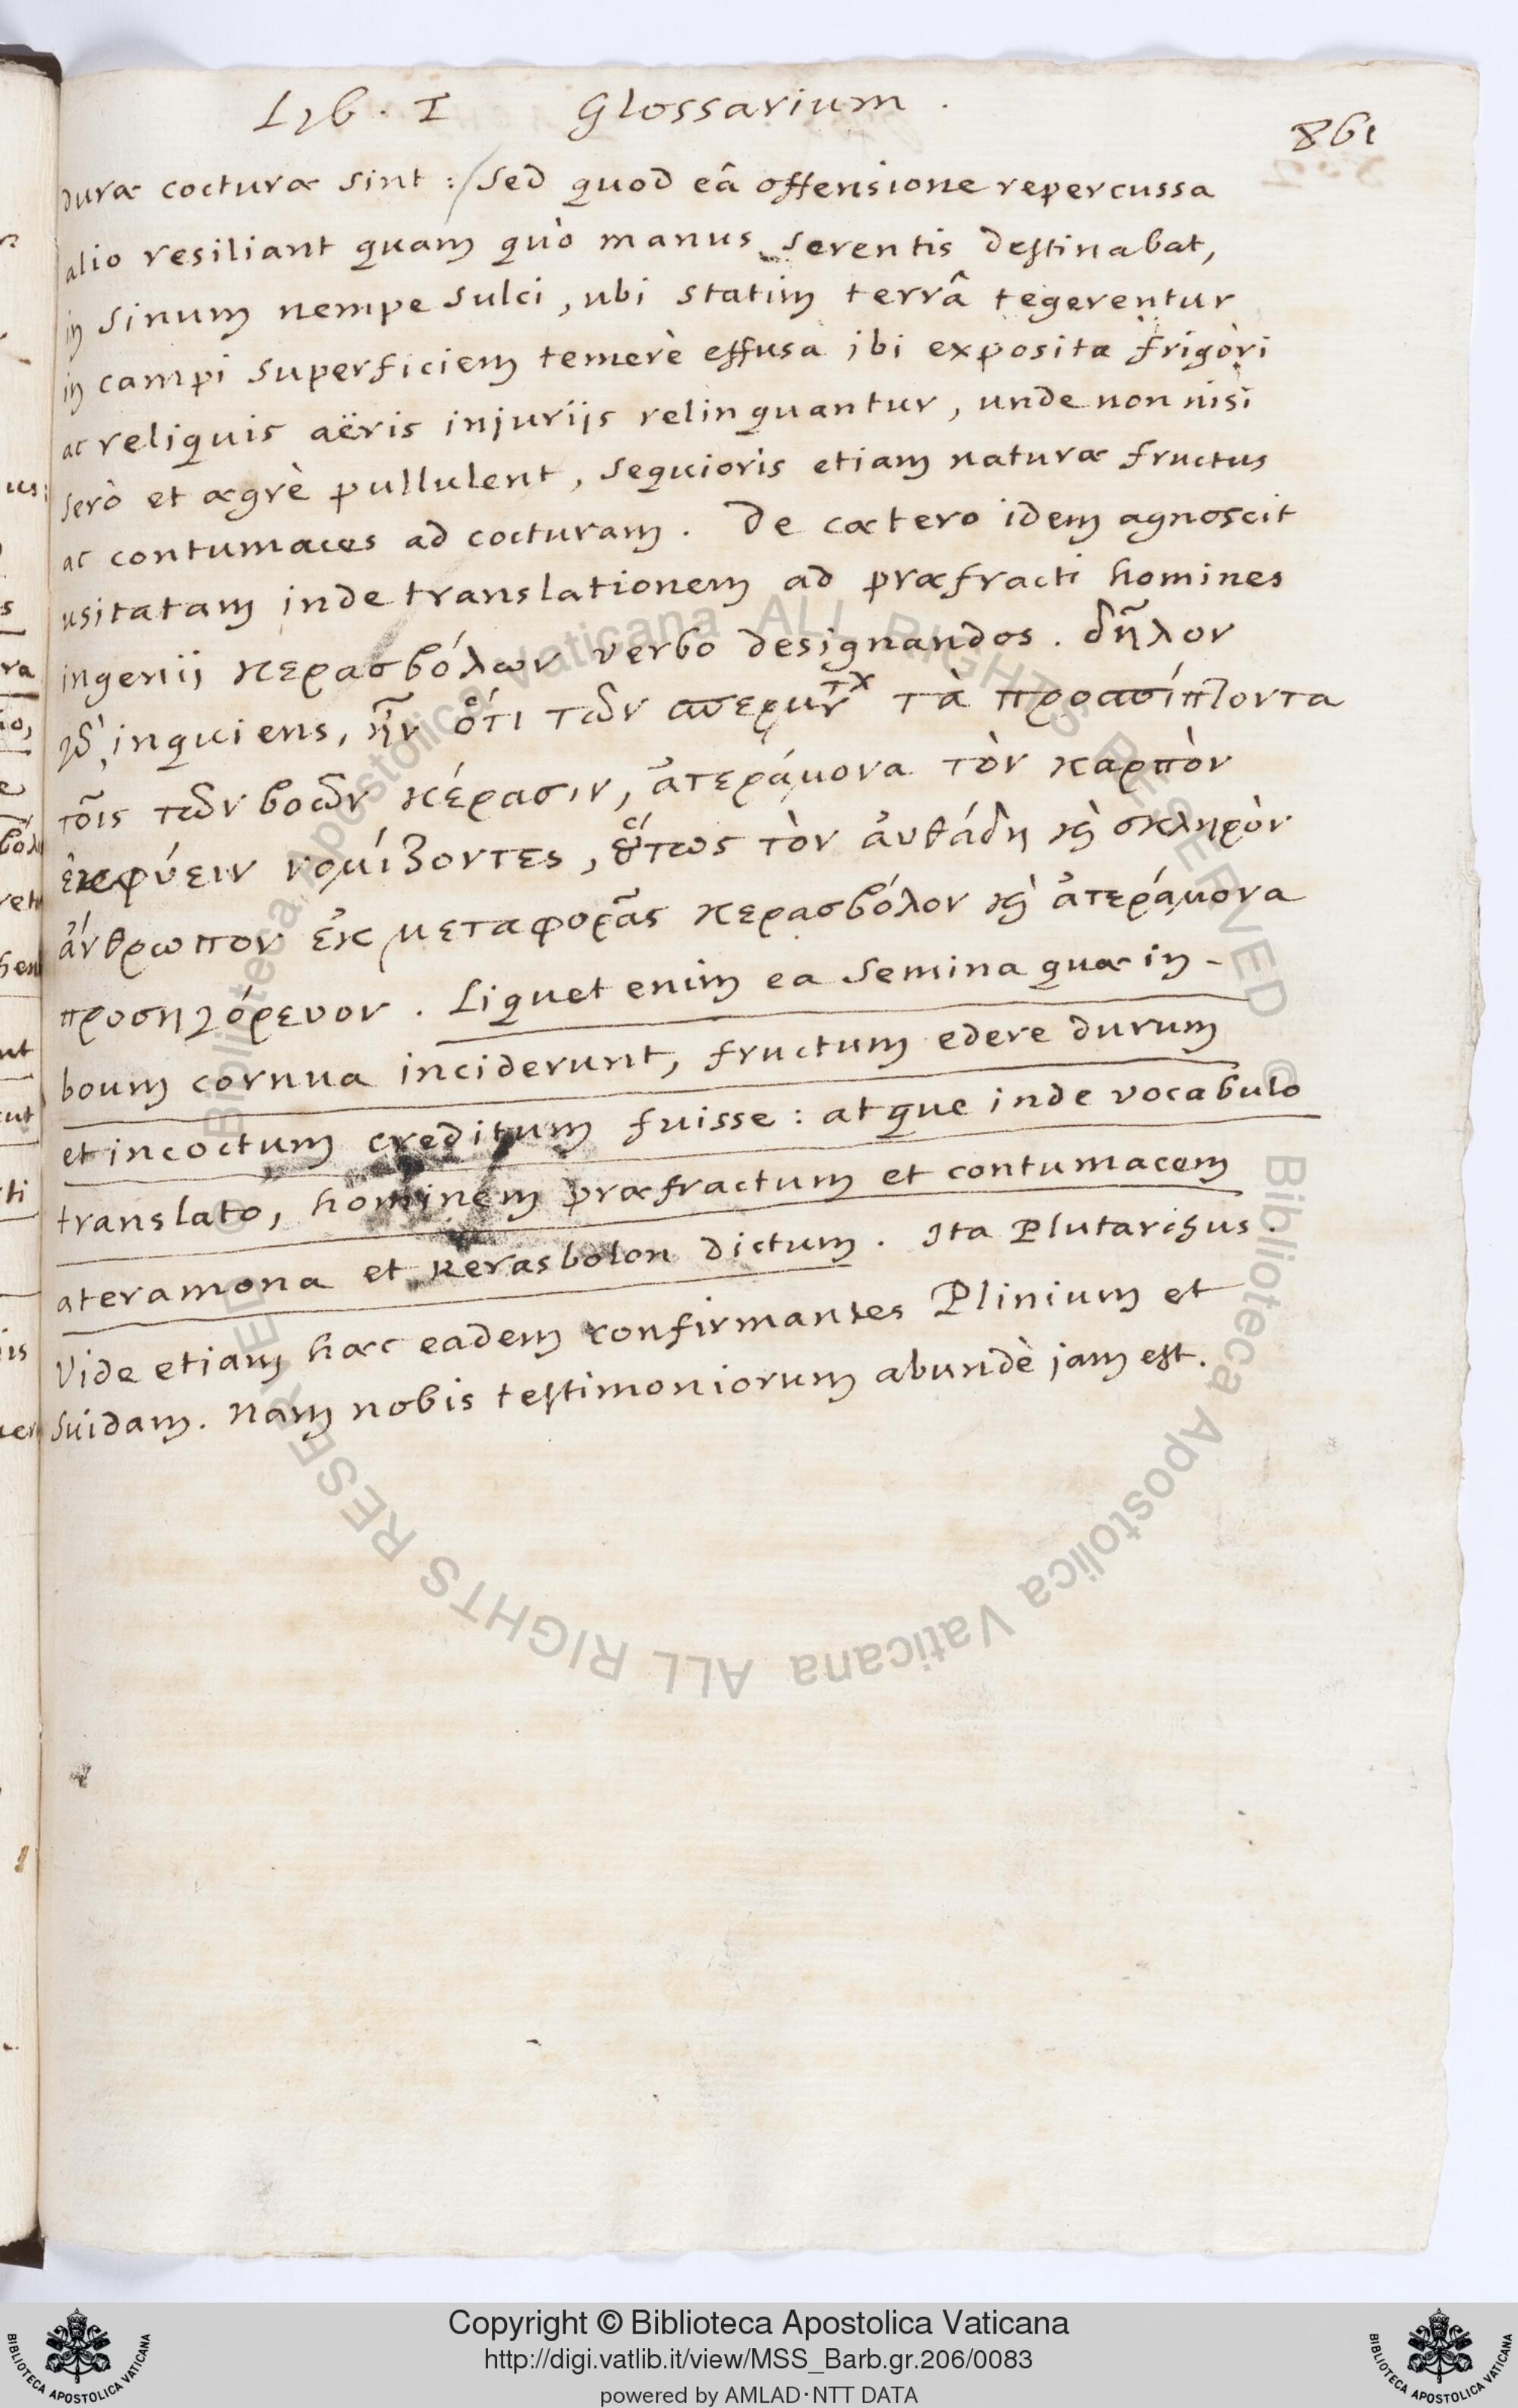 Lib. I Glossarium.
861
duræ cocturæ sint: sed quod eâ offensione repercussa
alio resiliant quam quò manus serentis destinabat,
in sinum nempe sulci, ubi statim terrâ tegerentur
in campi superficiem temerè effusa ibi exposita frigori
ac reliquis aëris injurijs relinquantur, unde non nisi
serò et ægrè pullulent, sequioris etiam naturæ fructus
ac contumaces ad cocturam. De cætero idem agnoscit
usitatam inde translationem ad præfracti homines
ingenij κερασβόλων verbo designandos. δῆλον
inquiens, ἦν ὅτι τῶν τὰ προσπίπτοντα
τοῖς τῶν βοῶν κέρασιν, ἀτεράμονα τὸν καρπὸν
ἐκφύειν νομίζοντες, ὅτως τὸν ἀυθάδη καὶ σκληρὸν
ἄνθρωπον ἐκ μεταφορᾶς κερασβόλον καὶ ἀτεράμονα
προσηγόρευον. Liquet enim ea semina quæ in-
boum cornua inciderunt, fructum edere durum
et incoctum creditum fuisse: atque inde vocabulo
translato, hominem præfractum et contumacem
ateramona et kerasbolon dictum. Ita Plutarchus.
Vide etiam hæc eadem confirmantes Plinium et
Suidam. Nam nobis testimoniorum abundè jam est.
© Biblioteca Apostolica Vaticana ALL RIGHTS RESERVED © Biblioteca Apostolica Vaticana ALL RIGHTS RESERVED
Copyright © Biblioteca Apostolica Vaticana
http://digi.vatlib.it/view/MSS_Barb.gr.206/0083
powered by AMLAD·NTT DATA
BIBLIOTECA APOSTOLICA VATICANA
BIBLIOTECA APOSTOLICA VATICANA